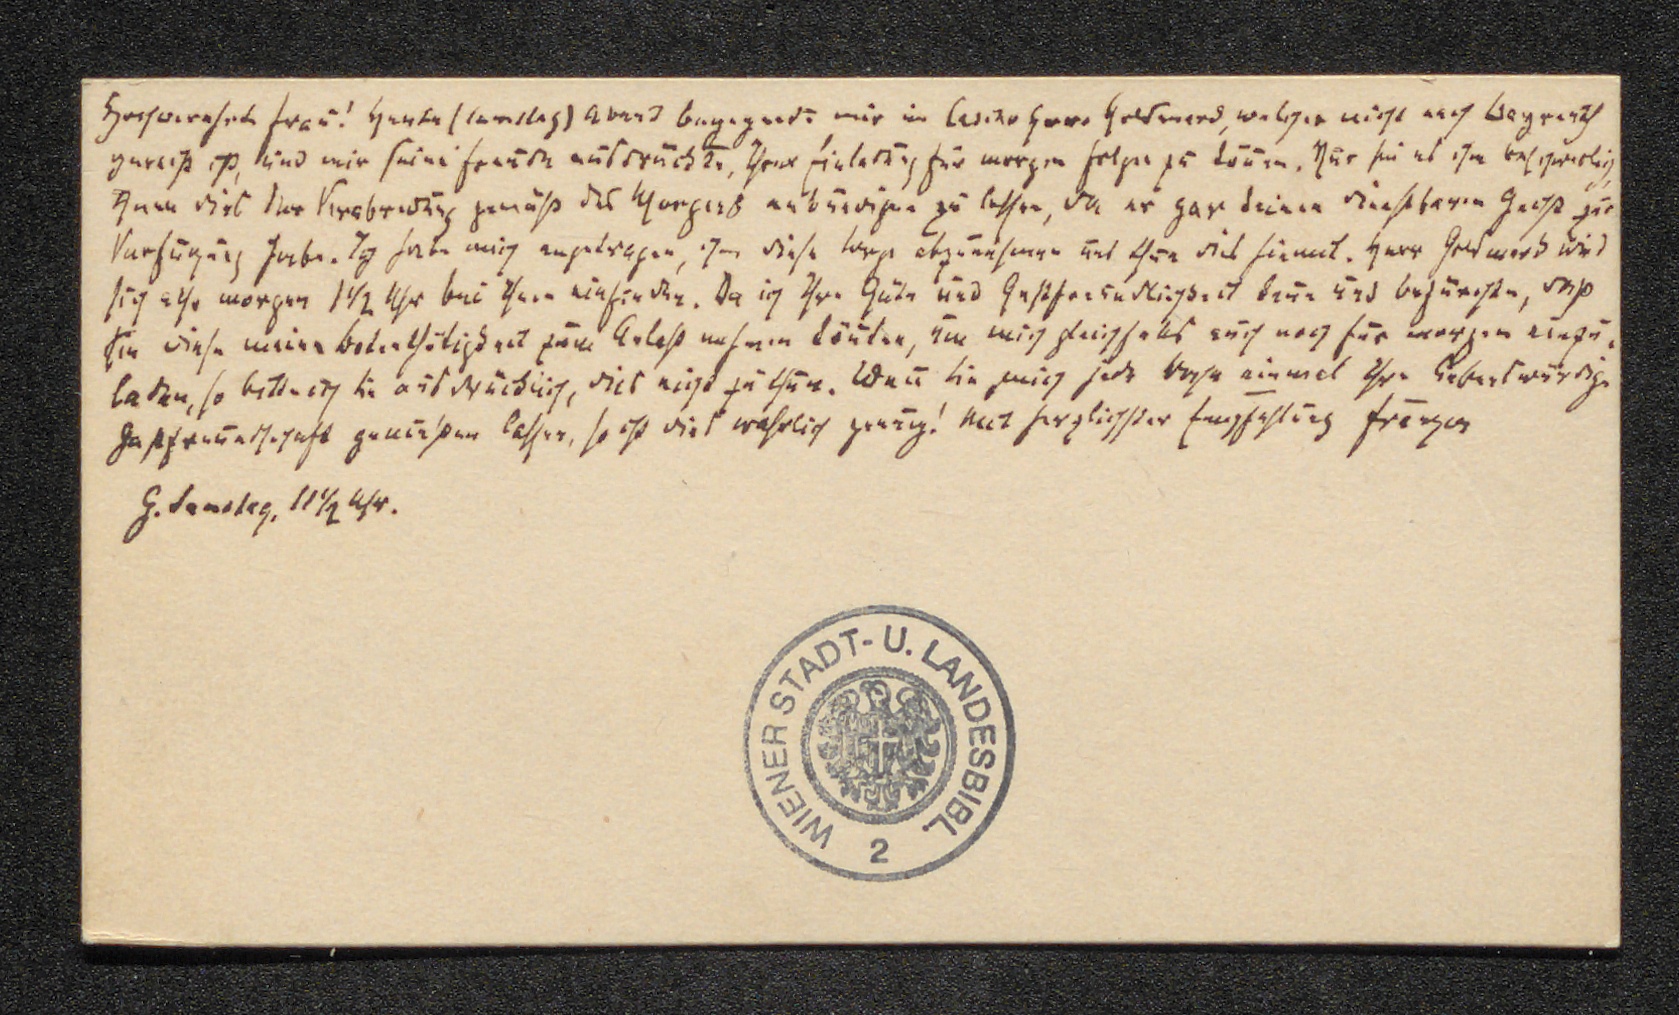 Hochverehrte Frau! Heute (Samstag) Abend begegnete mir im Casino Herr Goldmark, welcher nicht nach Bayreuth
gereist ist, und mir seine Freude ausdrückte, Ihrer Einladung für morgen folgen zu können. Nur sei es ihm beschwerlich,
Ihnen dies der Verabredung gemäß des Morgens ankündigen zu lassen, da er gar keinen dienstbaren Geist zur
Verfügung habe. Ich habe mich angetragen, ihm diese Sorge abzunehmen und thue dies hiemit. Herr Goldmark wird
sich also morgen 1 1/2 Uhr bei Ihnen einfinden. Da ich Ihre Güte und Gastfreundlichkeit kenne und befürchte, daß
Sie diese meine Botenthätigkeit zum Anlaß nehmen könnten, um mich gleichfalls auch noch für morgen einzu-
laden, so bitte ich Sie ausdrücklich, dies nicht zu thun. Wenn Sie mich jede Woche einmal Ihre liebenswürdige
Gastfreundschaft genießen lassen, so ist dies wahrlich genug! Mit herzlichster Empfehlung Franzos
G. Samstag, 11 1/2 Uhr.
WIENER STADT- U. LANDESBIBL.
2